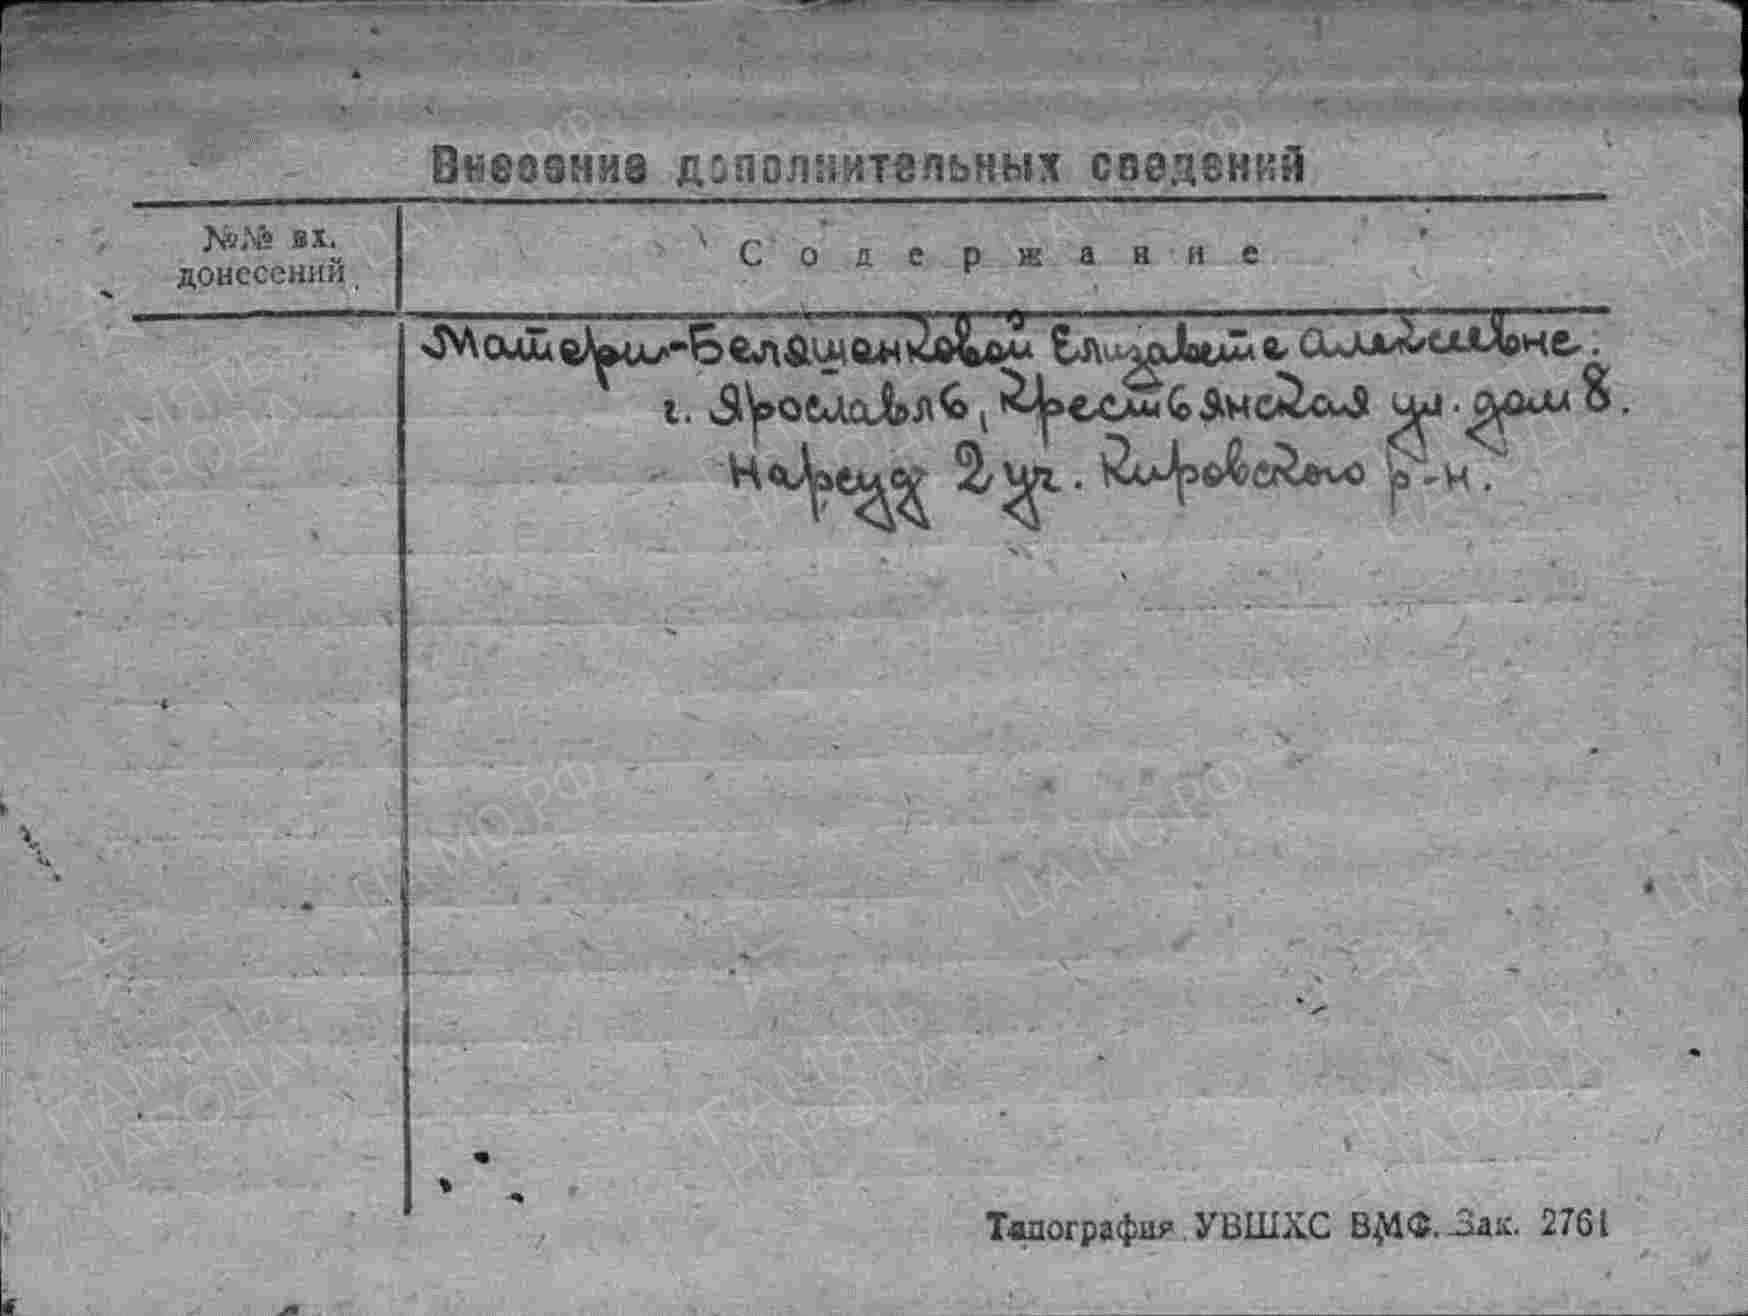 Внесение дополнительных сведений
№№ вх.
донесений
Содержание
Матери-Беляшенковой Елизавете Алексеевне:
г. Ярославль, Крестьянская ул. дом 8.
Нарсуд 2 уч. Кировского р-н.
Типография УВШХС ВМФ. Зак. 2761
ЦА МО РФ
ПАМЯТЬ
НАРОДА